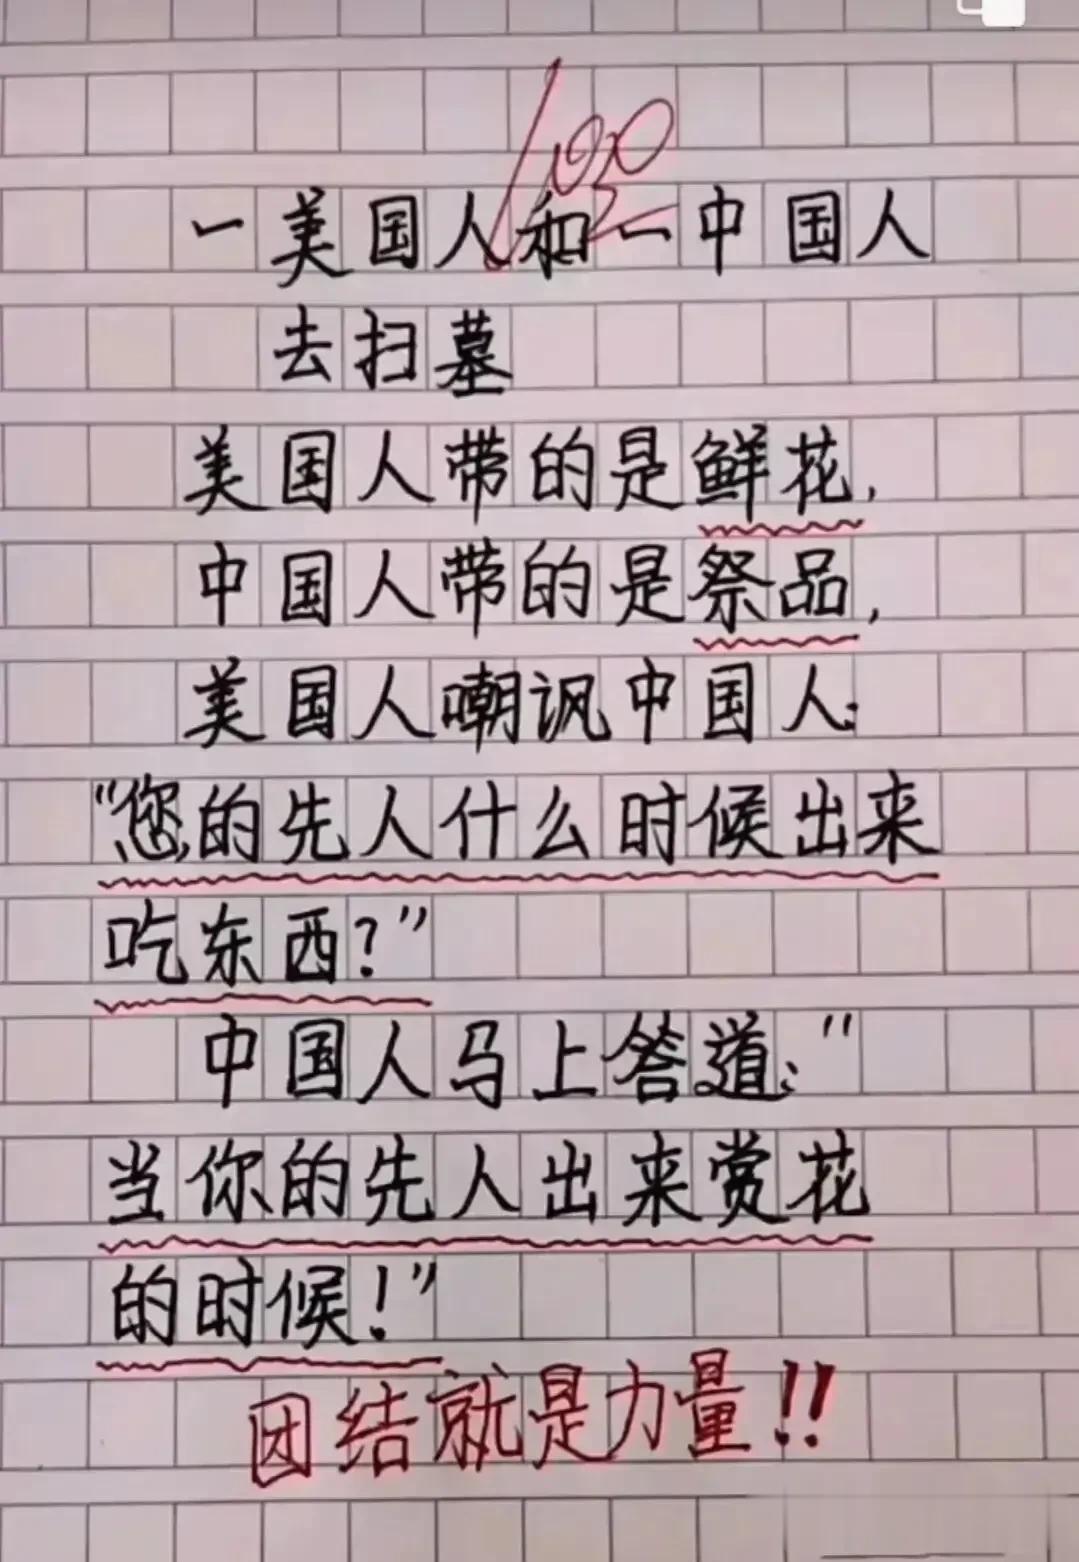 100
一美国人和一中国人
去扫墓
美国人带的是鲜花,
中国人带的是祭品,
美国人嘲讽中国人:
“您的先人什么时候出来
吃东西?”
中国人马上答道:"
当你的先人出来赏花
的时候!”
团结就是力量!!